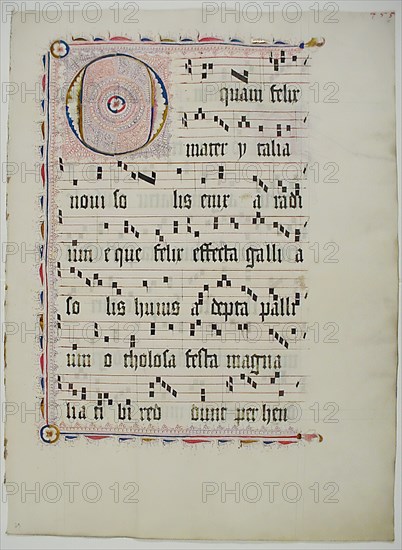 O quam felix
mater ytalia
noui so lis enix a radi
um e que felix effecta galli a
so lis huius a depta palli
um o tholosa festa magna
lia ti bi red dunt per hen